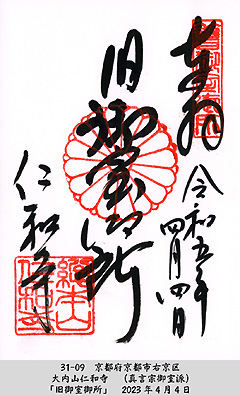 奉拝
令和五年
四月四日
旧御室御所
仁和寺
31-09 京都府京都市右京区
大内山仁和寺 (真言宗御室派)
「旧御室御所」 2023年4月4日